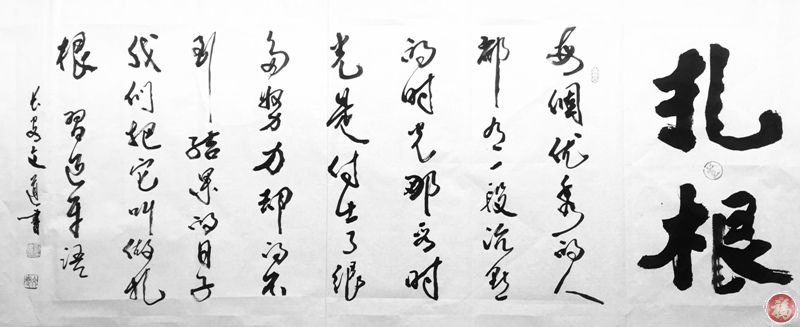 扎根
每個优秀的人
都有一段沉默
的时光那段时
光是付出了很
多努力却得不
到結果的日子
我们把它叫做扎
根 習近平语
長安文道書
福